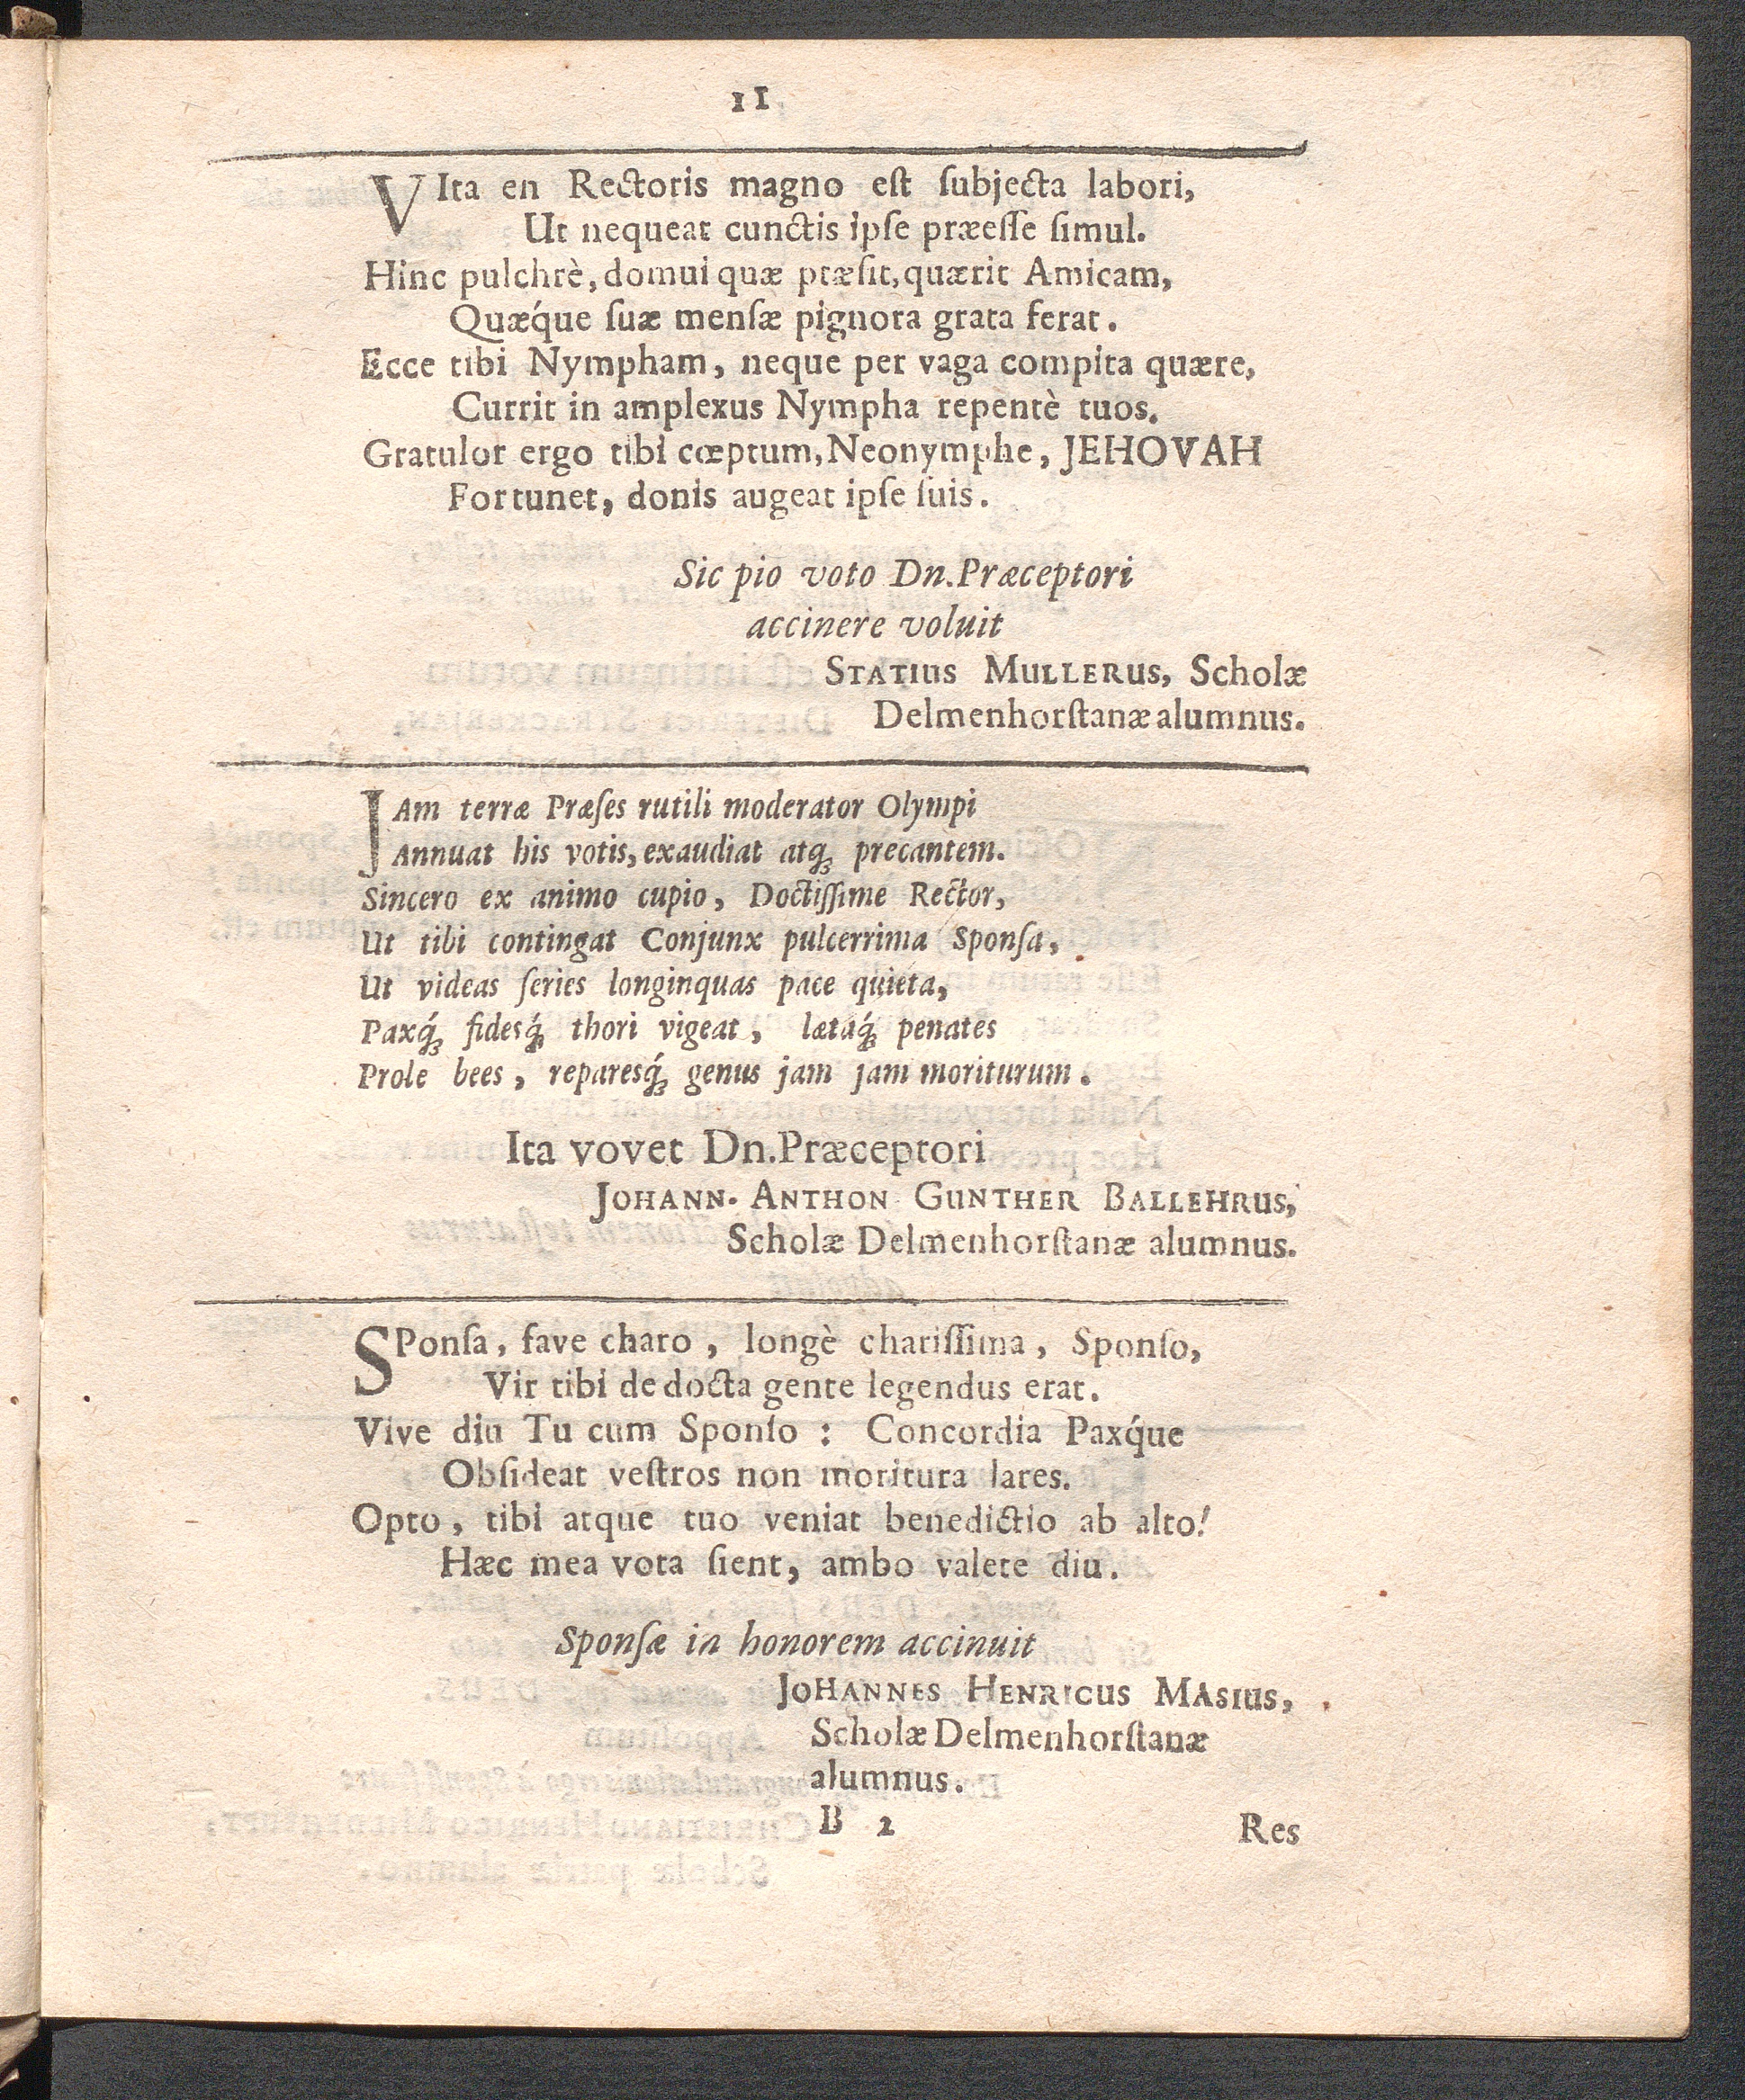 11
VIta en Rectoris magno eſt ſubjecta labori,
Ut nequeat cunctis ipſe præeſſe ſimul.
Hinc pulchrè, domui quæ præſit, quærit Amicam,
Quæq́ue ſuæ menſæ pignora grata ferat.
Ecce tibi Nympham, neque per vaga compita quære,
Currit in amplexus Nympha repentè tuos.
Gratulor ergo tibi cœptum, Neonymphe, JEHOVAH
Fortunet, donis augeat ipſe ſuis.
Sic pio voto Dn. Præceptori
accinere voluit
STATIUS MULLERUS, Scholæ
Delmenhorſtanæ alumnus.
JAm terræ Præſes rutili moderator Olympi
Annuat his votis, exaudiat atq́; precantem.
Sincero ex animo cupio, Doctiſſime Rector,
Ut tibi contingat Conjunx pulcerrima Sponſa,
Ut videas ſeries longinquas pace quieta,
Paxq́; fidesq́; thori vigeat, lætaq́; penates
Prole bees, reparesq́; genus jam jam moriturum.
Ita vovet Dn. Præceptori
JOHANN. ANTHON GUNTHER BALLEHRUS,
Scholæ Delmenhorſtanæ alumnus.
SPonſa, fave charo, longè chariſſima, Sponſo,
Vir tibi de docta gente legendus erat.
Vive diu Tu cum Sponſo: Concordia Paxq́ue
Obſideat veſtros non moritura lares.
Opto, tibi atque tuo veniat benedictio ab alto!
Hæc mea vota ſient, ambo valete diu.
Sponſæ in honorem accinuit
JOHANNES HENRICUS MASIUS,
Scholæ Delmenhorſtanæ
alumnus.
B 2
Res